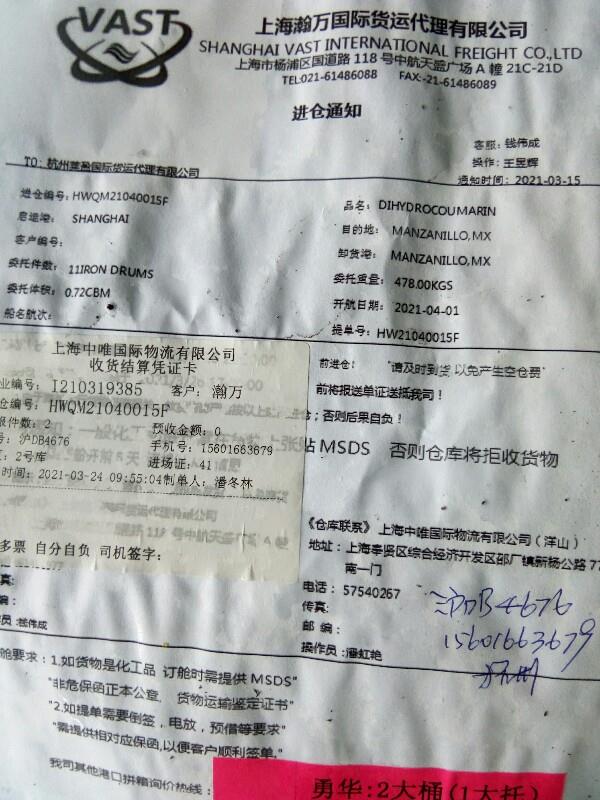 VAST
上海瀚万国际货运代理有限公司
SHANGHAI VAST INTERNATIONAL FREIGHT CO.,LTD
上海市杨浦区国道路118号中航天盛广场A幢21C-21D
TEL:021-61486088 FAX:-21-61486089
进仓通知
客服：钱伟成
操作：王昱辉
TO：杭州莱盈国际货运代理有限公司
通知时间：2021-03-15
进仓编号：HWQM21040015F
品名：DIHYDROCOUMARIN
启运港： SHANGHAI
目的地： MANZANILLO,MX
客户编号：
卸货港： MANZANILLO,MX
委托件数： 11IRON DRUMS
委托重量： 478.00KGS
委托体积： 0.72CBM
开航日期： 2021-04-01
船名航次：
提单号：HW21040015F
上海中唯国际物流有限公司
收货结算凭证卡
业编号：I210319385 客户：瀚万
仓编号：HWQM21040015F
件数：2 预收金额：0
号：沪DB4676 手机号：15601663679
：2号库 进场证：41
时间：2021-03-24 09:55:04 制单人：潘冬林
多票 自分自负 司机签字：
前进仓！ "请及时到货 以免产生空仓费"
前将报送单证送抵我司！
；否则后果自负！
贴 MSDS 否则仓库将拒收货物
《仓库联系》上海中唯国际物流有限公司（洋山）
地址：上海奉贤区综合经济开发区邵厂镇新杨公路77
南一门
电话： 57540267
传真：
邮编：
操作员：潘虹艳
沪DB4676
15601663679
真：
编：
员：钱伟成
舱要求：1.如货物是化工品 订舱时需提供MSDS"
"非危保函正本公章， 货物运输鉴定证书"
"2.如提单需要倒签，电放，预借等要求"
"需提供相对应保函,以便客户顺利签单."
我司其他港口拼箱询价热线：
勇华:2大桶(1大托)